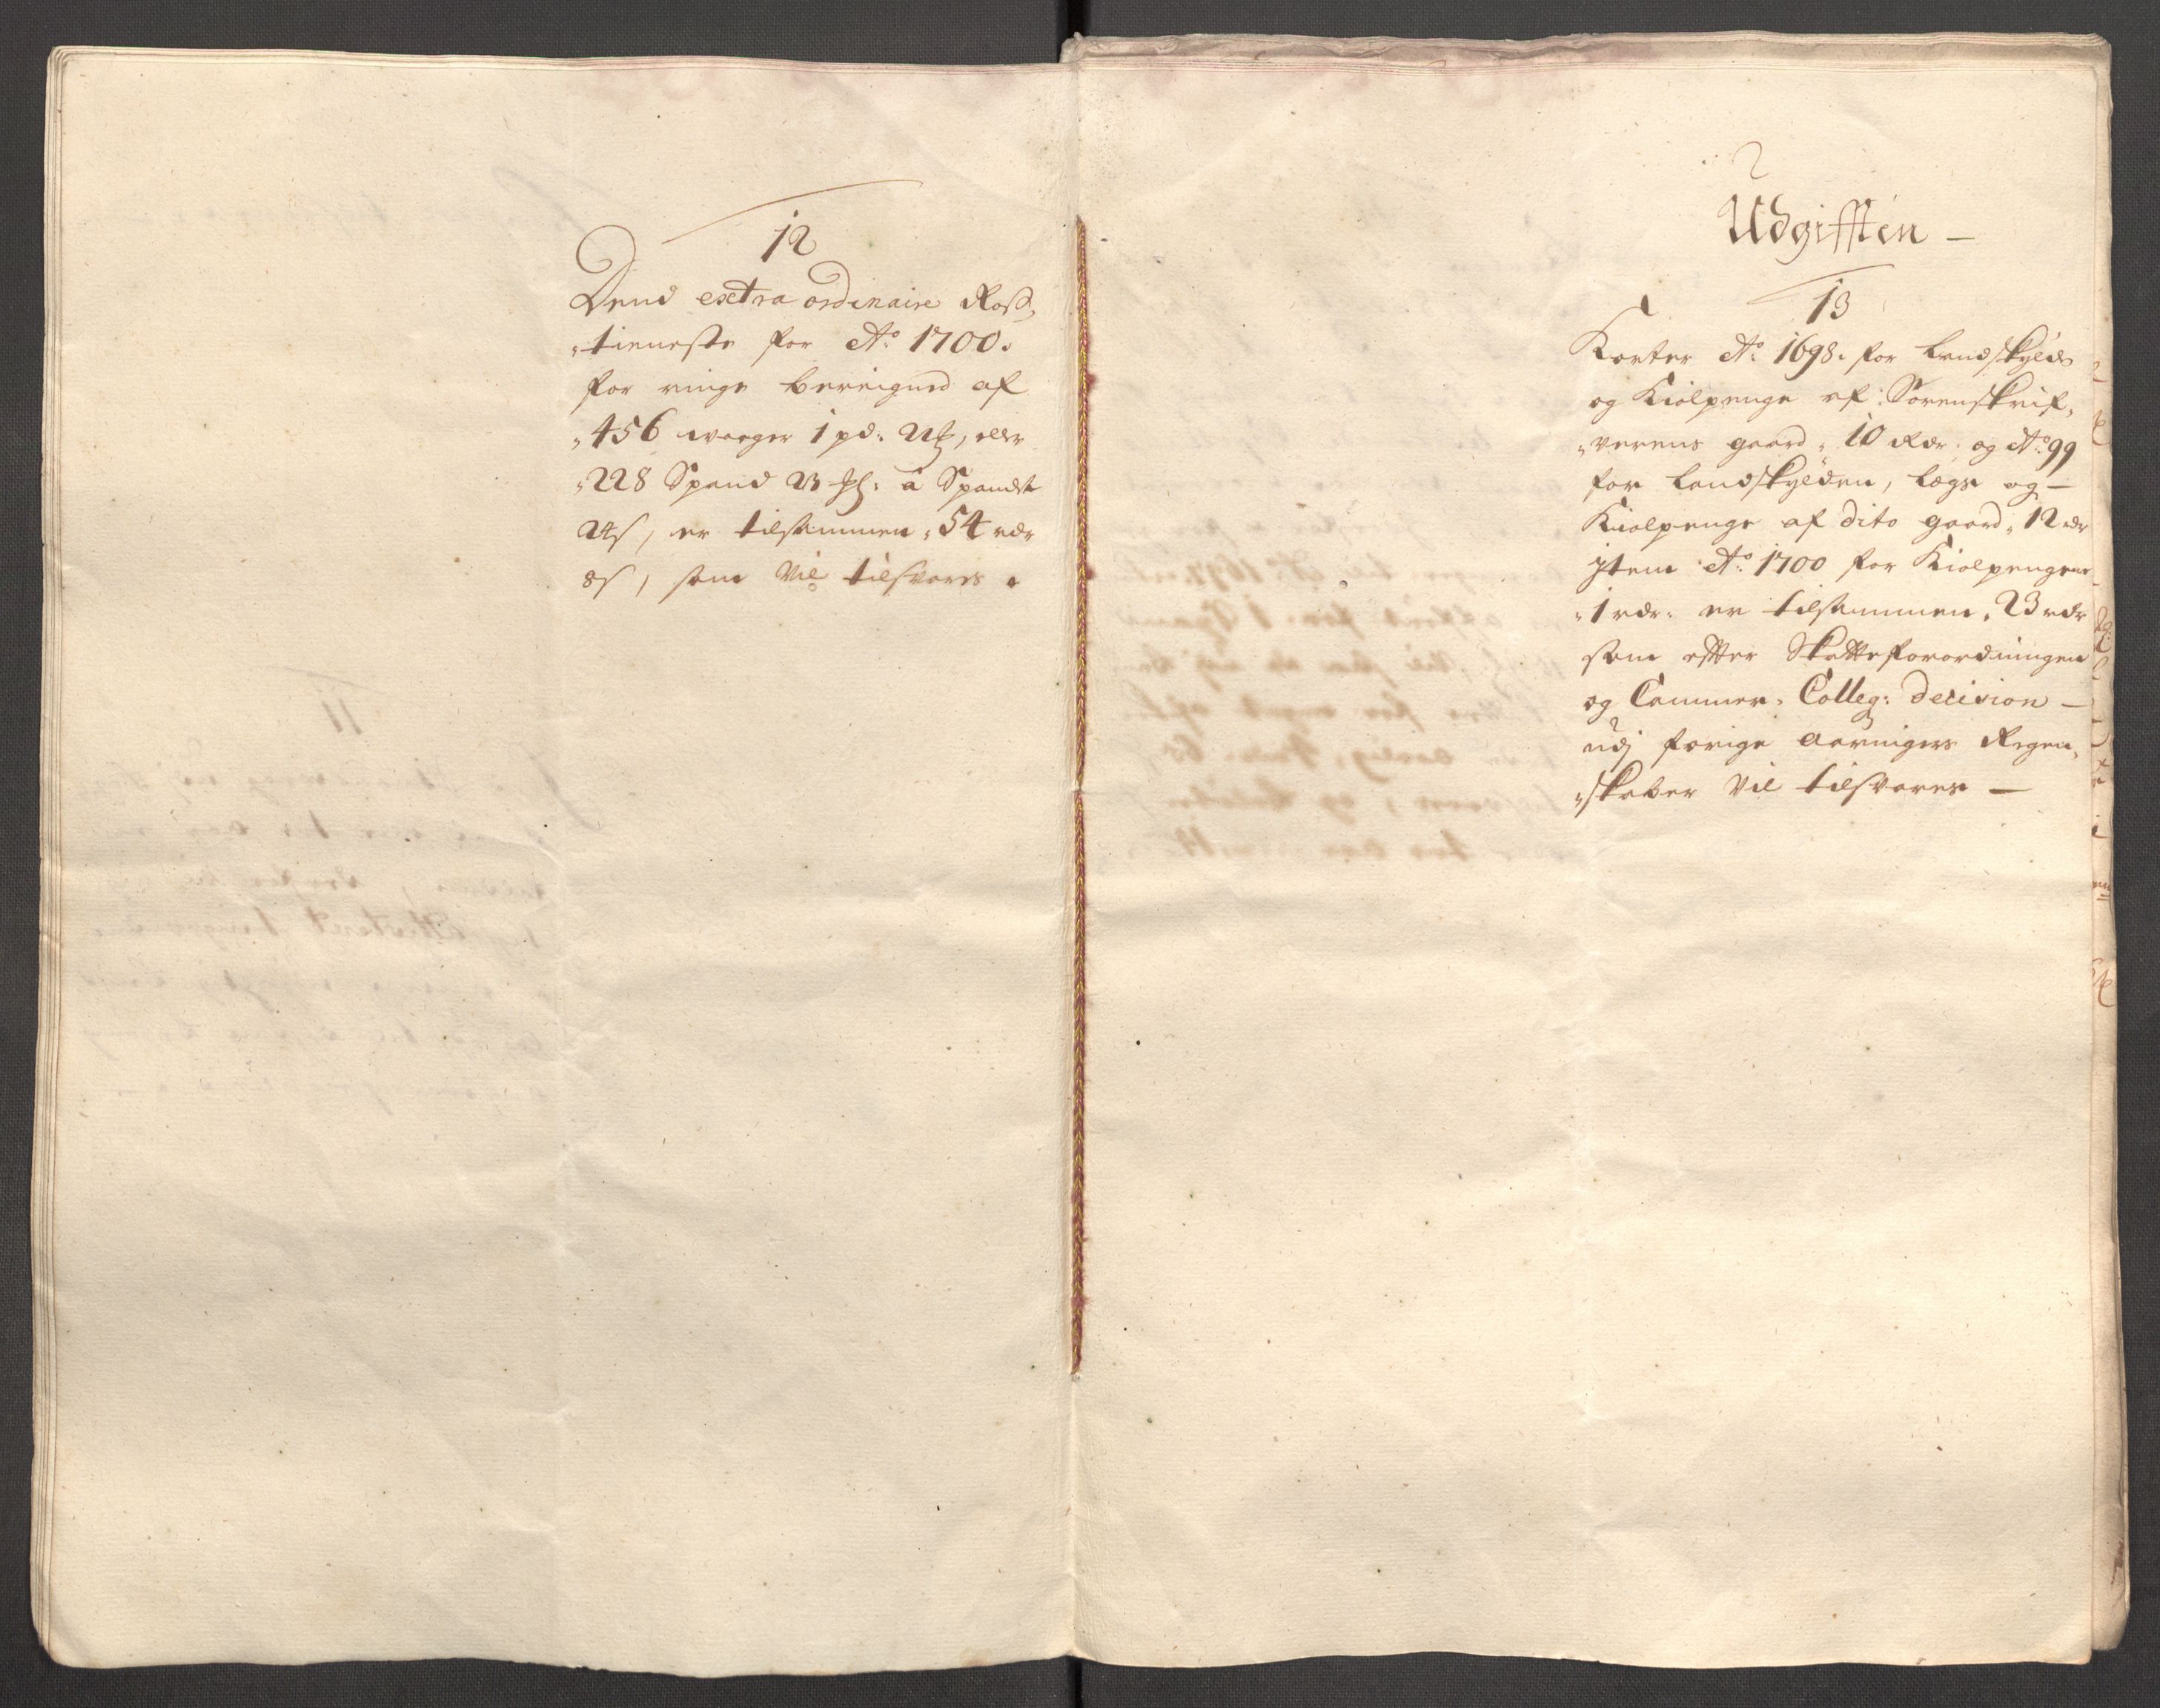 12
Dend extra ordinaire Ross„
„tieneste for Ao: 1700.
for ringe bereigned af
„456 waager 1 pd: eller
„228 Spand á Spandet
er tilsammen „54 rdr
8s, som vil tilsvares.
Udgifften –
13
Korter Ao: 1698. for Landskyld
og Kiolpenge af Sorenskrif„
„verens gaard „10 Rdr: og Ao: 99
for Landskylden, Bøgs og –
Kiolpenge af dito gaard „12 rdr
jtem Ao: 1700 for Kiolpengene
„1 rdr: er tilsammen „23 rdr
som efter Skatteforordningen
og Cammer-Colleg: decision –
udj forige aaringers Regen„
„skaber vil tilsvares –